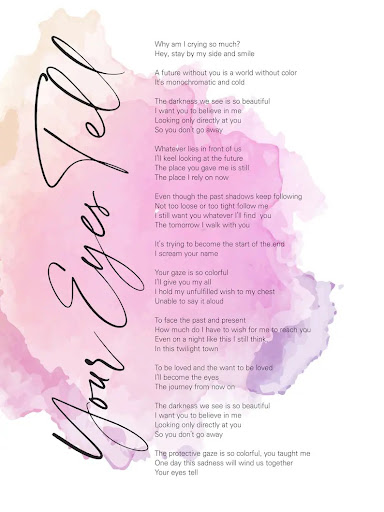 Your Eyes Tell
Why am I crying so much?
Hey, stay by my side and smile
A future without you is a world without color
It's monochromatic and cold
The darkness we see is so beautiful
I want you to believe in me
Looking only directly at you
So you don't go away
Whatever lies in front of us
I'll keel looking at the future
The place you gave me is still
The place I rely on now
Even though the past shadows keep following
Not too loose or too tight follow me
I still want you whatever I'll find you
The tomorrow I walk with you
It's trying to become the start of the end
I scream your name
Your gaze is so colorful
I'll give you my all
I hold my unfulfilled wish to my chest
Unable to say it aloud
To face the past and present
How much do I have to wish for me to reach you
Even on a night like this I still think
In this twilight town
To be loved and the want to be loved
I'll become the eyes
The journey from now on
The darkness we see is so beautiful
I want you to believe in me
Looking only directly at you
So you don't go away
The protective gaze is so colorful, you taught me
One day this sadness will wind us together
Your eyes tell